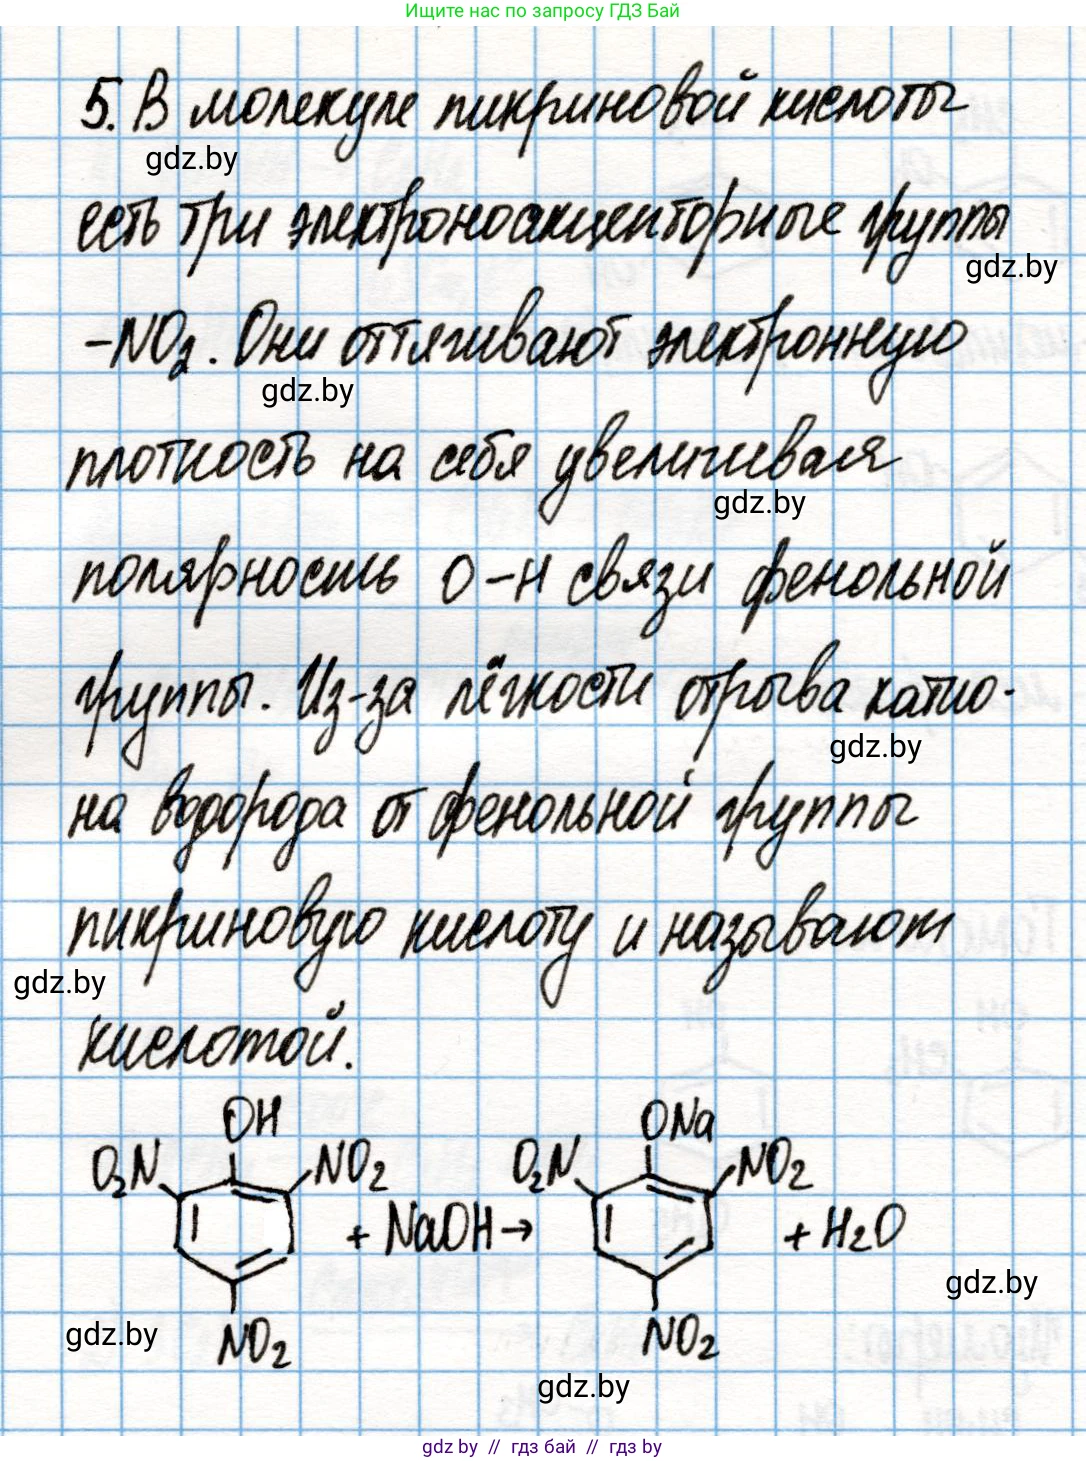 Ищите нас по запросу ГДЗ Бай
5. В молекуле пикриновой кислоты
gdz.by
есть три электроноакцепторные группы
gdz.by
-NO2. Они оттягивают электронную
gdz.by
плотность на себя увеличивая
gdz.by
полярность O-H связи фенольной
группы. Из-за лёгкости отрыва катио-
gdz.by
на водорода от фенольной группы
пикриновую кислоту и называют
gdz.by
кислотой.
OH ONa
O2N NO2 O2N NO2
+ NaOH → + H2O
gdz.by
gdz.by
NO2 NO2
gdz.by
gdz by // гдз бай // гдз by